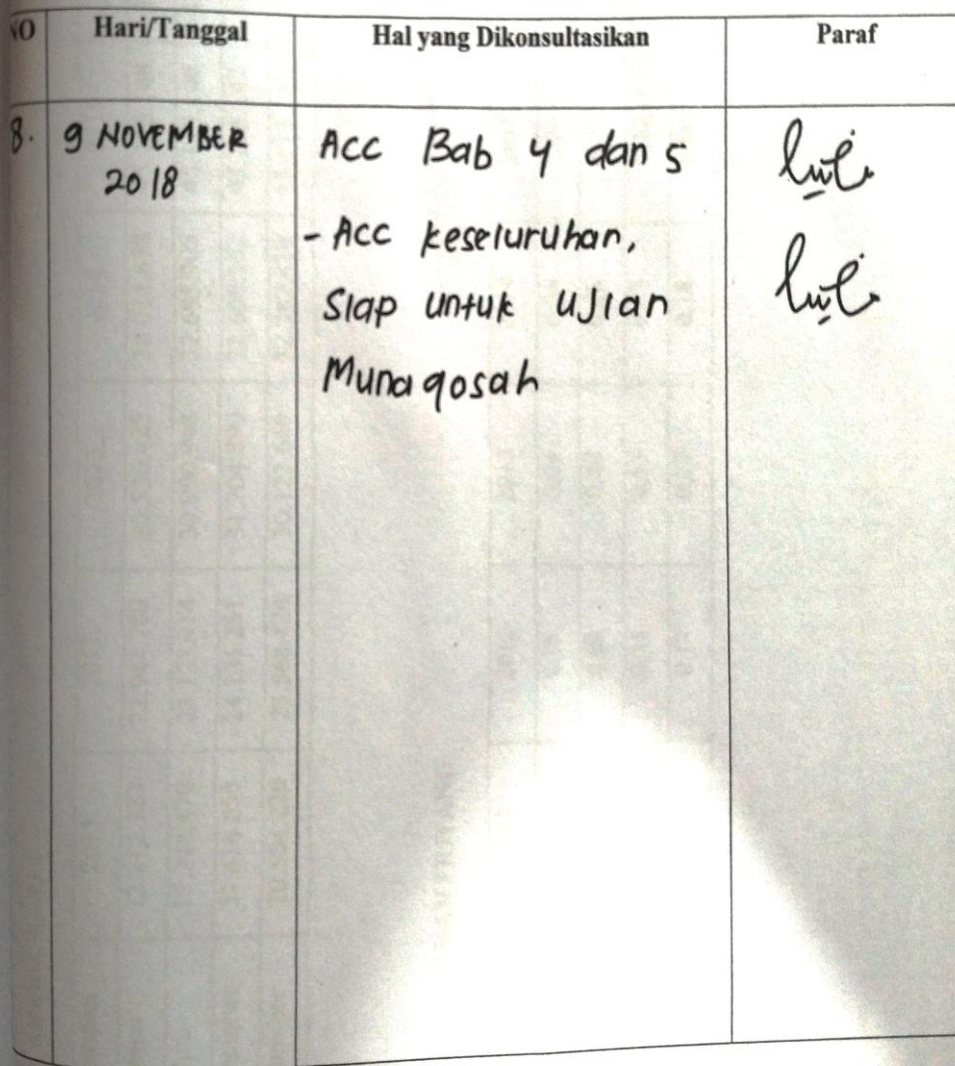 NO Hari/Tanggal Hal yang Dikonsultasikan Paraf
8. 9 NOVEMBER Acc Bab 4 dan 5
2018
- Acc keseluruhan,
Siap untuk ujian
Munaqosah